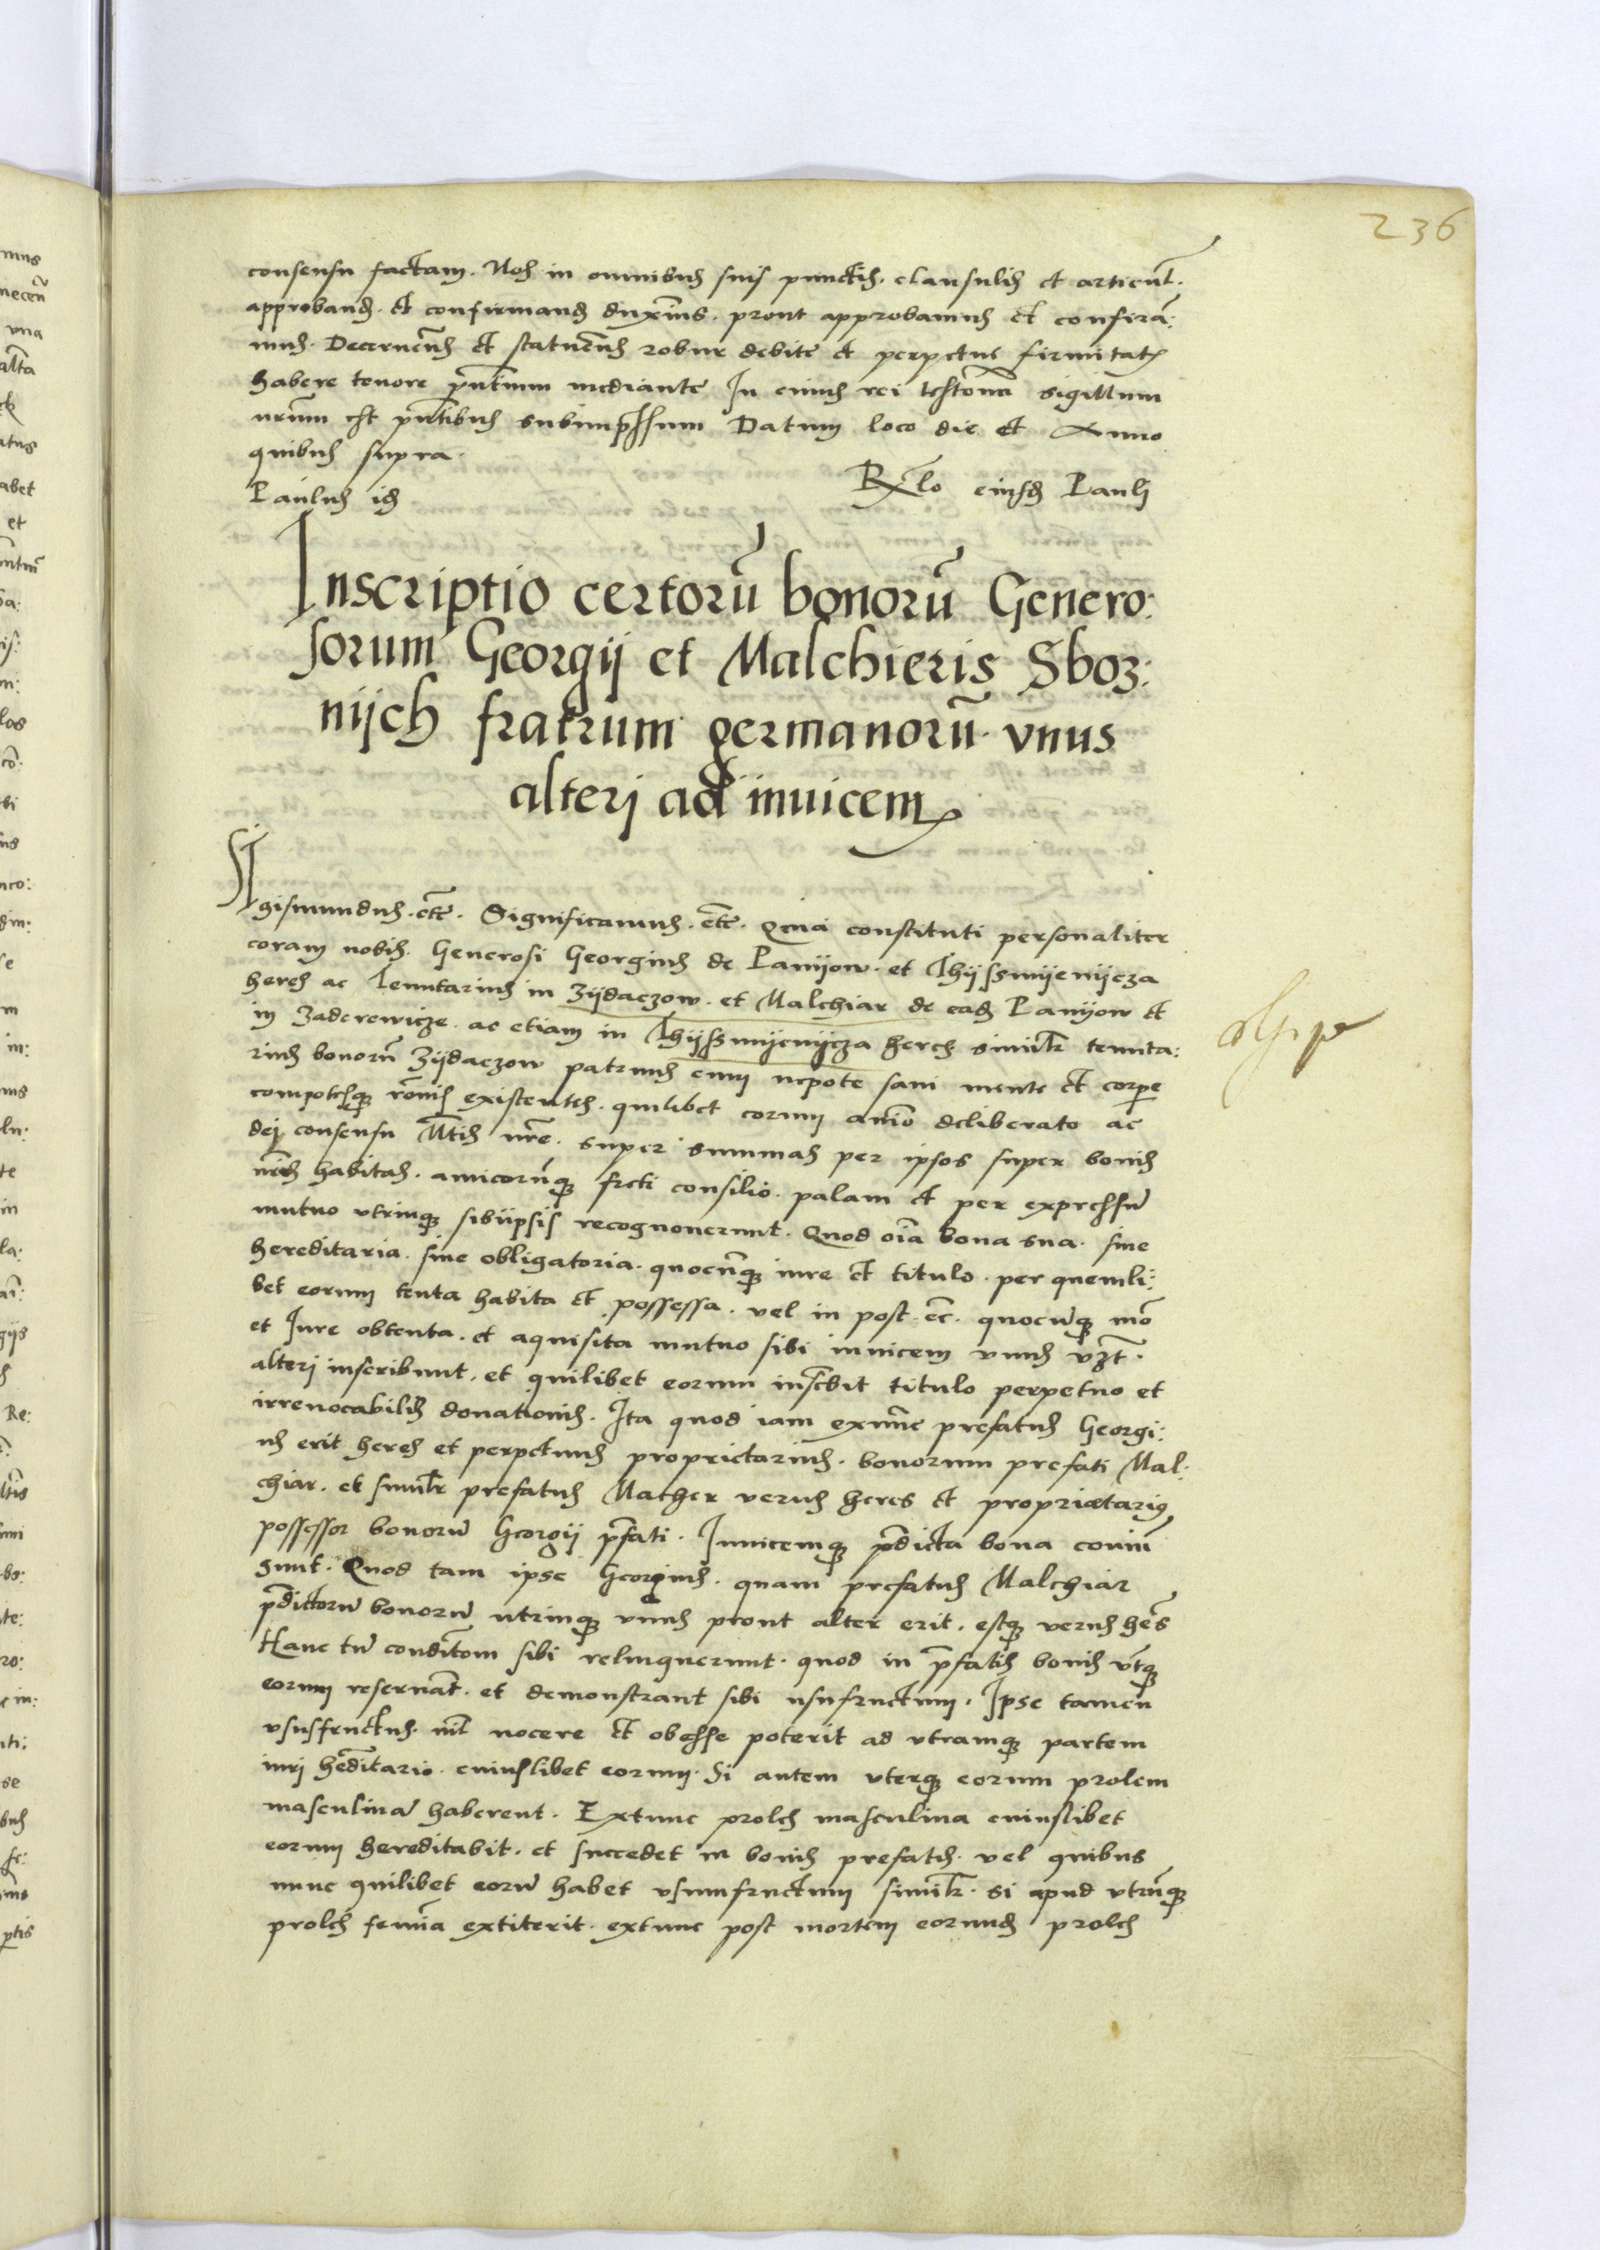 236
consensu factam. Nos in omnibus suis punctis. clausulis et articul.
approband. et confirmand duxims. prout approbamus et confirā:
mus. Decernens et statuens robur debite et perpetue firmitatis
habere tenore pntium mediante In cuius rei testom sigillum
nrum est pntibus subimpssum Datum loco die et Anno
quibus supra.
Paulus id Rlo eiusd Pauli
Inscriptio certorū bonorū Genero:
sorum Georgij et Malchieris Sboz:
nijch fratrum germanorū. vnus
alterj ad inuicem
Sigismundus. etc. Significamus. etc. Quia constituti personaliter
coram nobis. Generosi Georgius de Panijow. et Thijssmijenijcza
heres ac Tenutarius in Zijdaczow. et Malchiar de ead Panijow et
in Zaderewicze. ac etiam in Thijssmijenijcza heres similr tenuta:
rius bonorū Zijdaczow patruus cum nepote sani mente et corpe
compotesque ronis existentes. quilibet eorum animo deliberato ac
dej consensu Mtis nre. super summas per ipsos super bonis
nris habitas. amicorūque freti consilio. palam et per expressū
mutuo vtrinque sibiipsis recognouerunt. Quod oīa bona sua. siue
hereditaria. siue obligatoria. quocūque iure et titulo. per quemli:
bet eorum tenta habita et possessa. vel in post. etc. quocūque mō
et Iure obtenta. et aquisita mutuo sibi inuicem vnus vzt.
alterj inscribunt. et quilibet eorum inscbit titulo perpetuo et
irreuocabilis donationis. Ita quod iam extunc prefatus Georgi:
us erit heres et perpetuus proprietarius. bonorum prefati Mal:
chiar. et similr prefatus Malcher verus heres et proprietarius
possessor bonorū Georgij pfati. Inuicemque pdicta bona coniuī
sunt. Quod tam ipse Georgius. quam prefatus Malchiar
pdictorū bonorū utrinque vnus prout alter erit. estque verus hēs
Hanc tū conditom sibi relinquerunt. quod in pfatis bonis vtque
eorum reseruāt. et demonstrant sibi usufructum. Ipse tamen
vsusfructus. nil nocere et obesse poterit ad vtramque partem
iurj hēditario. cuiuslibet eorum. Si autem vterque eorum prolem
masculinā haberent. Extunc proles masculina cuiuslibet
eorum hereditabit. et succedet in bonis prefatis. vel quibus
nunc quilibet eorū habet vsumfructum similr. si apud vtrūque
proles femīa extiterit. extunc post mortem eorund proles